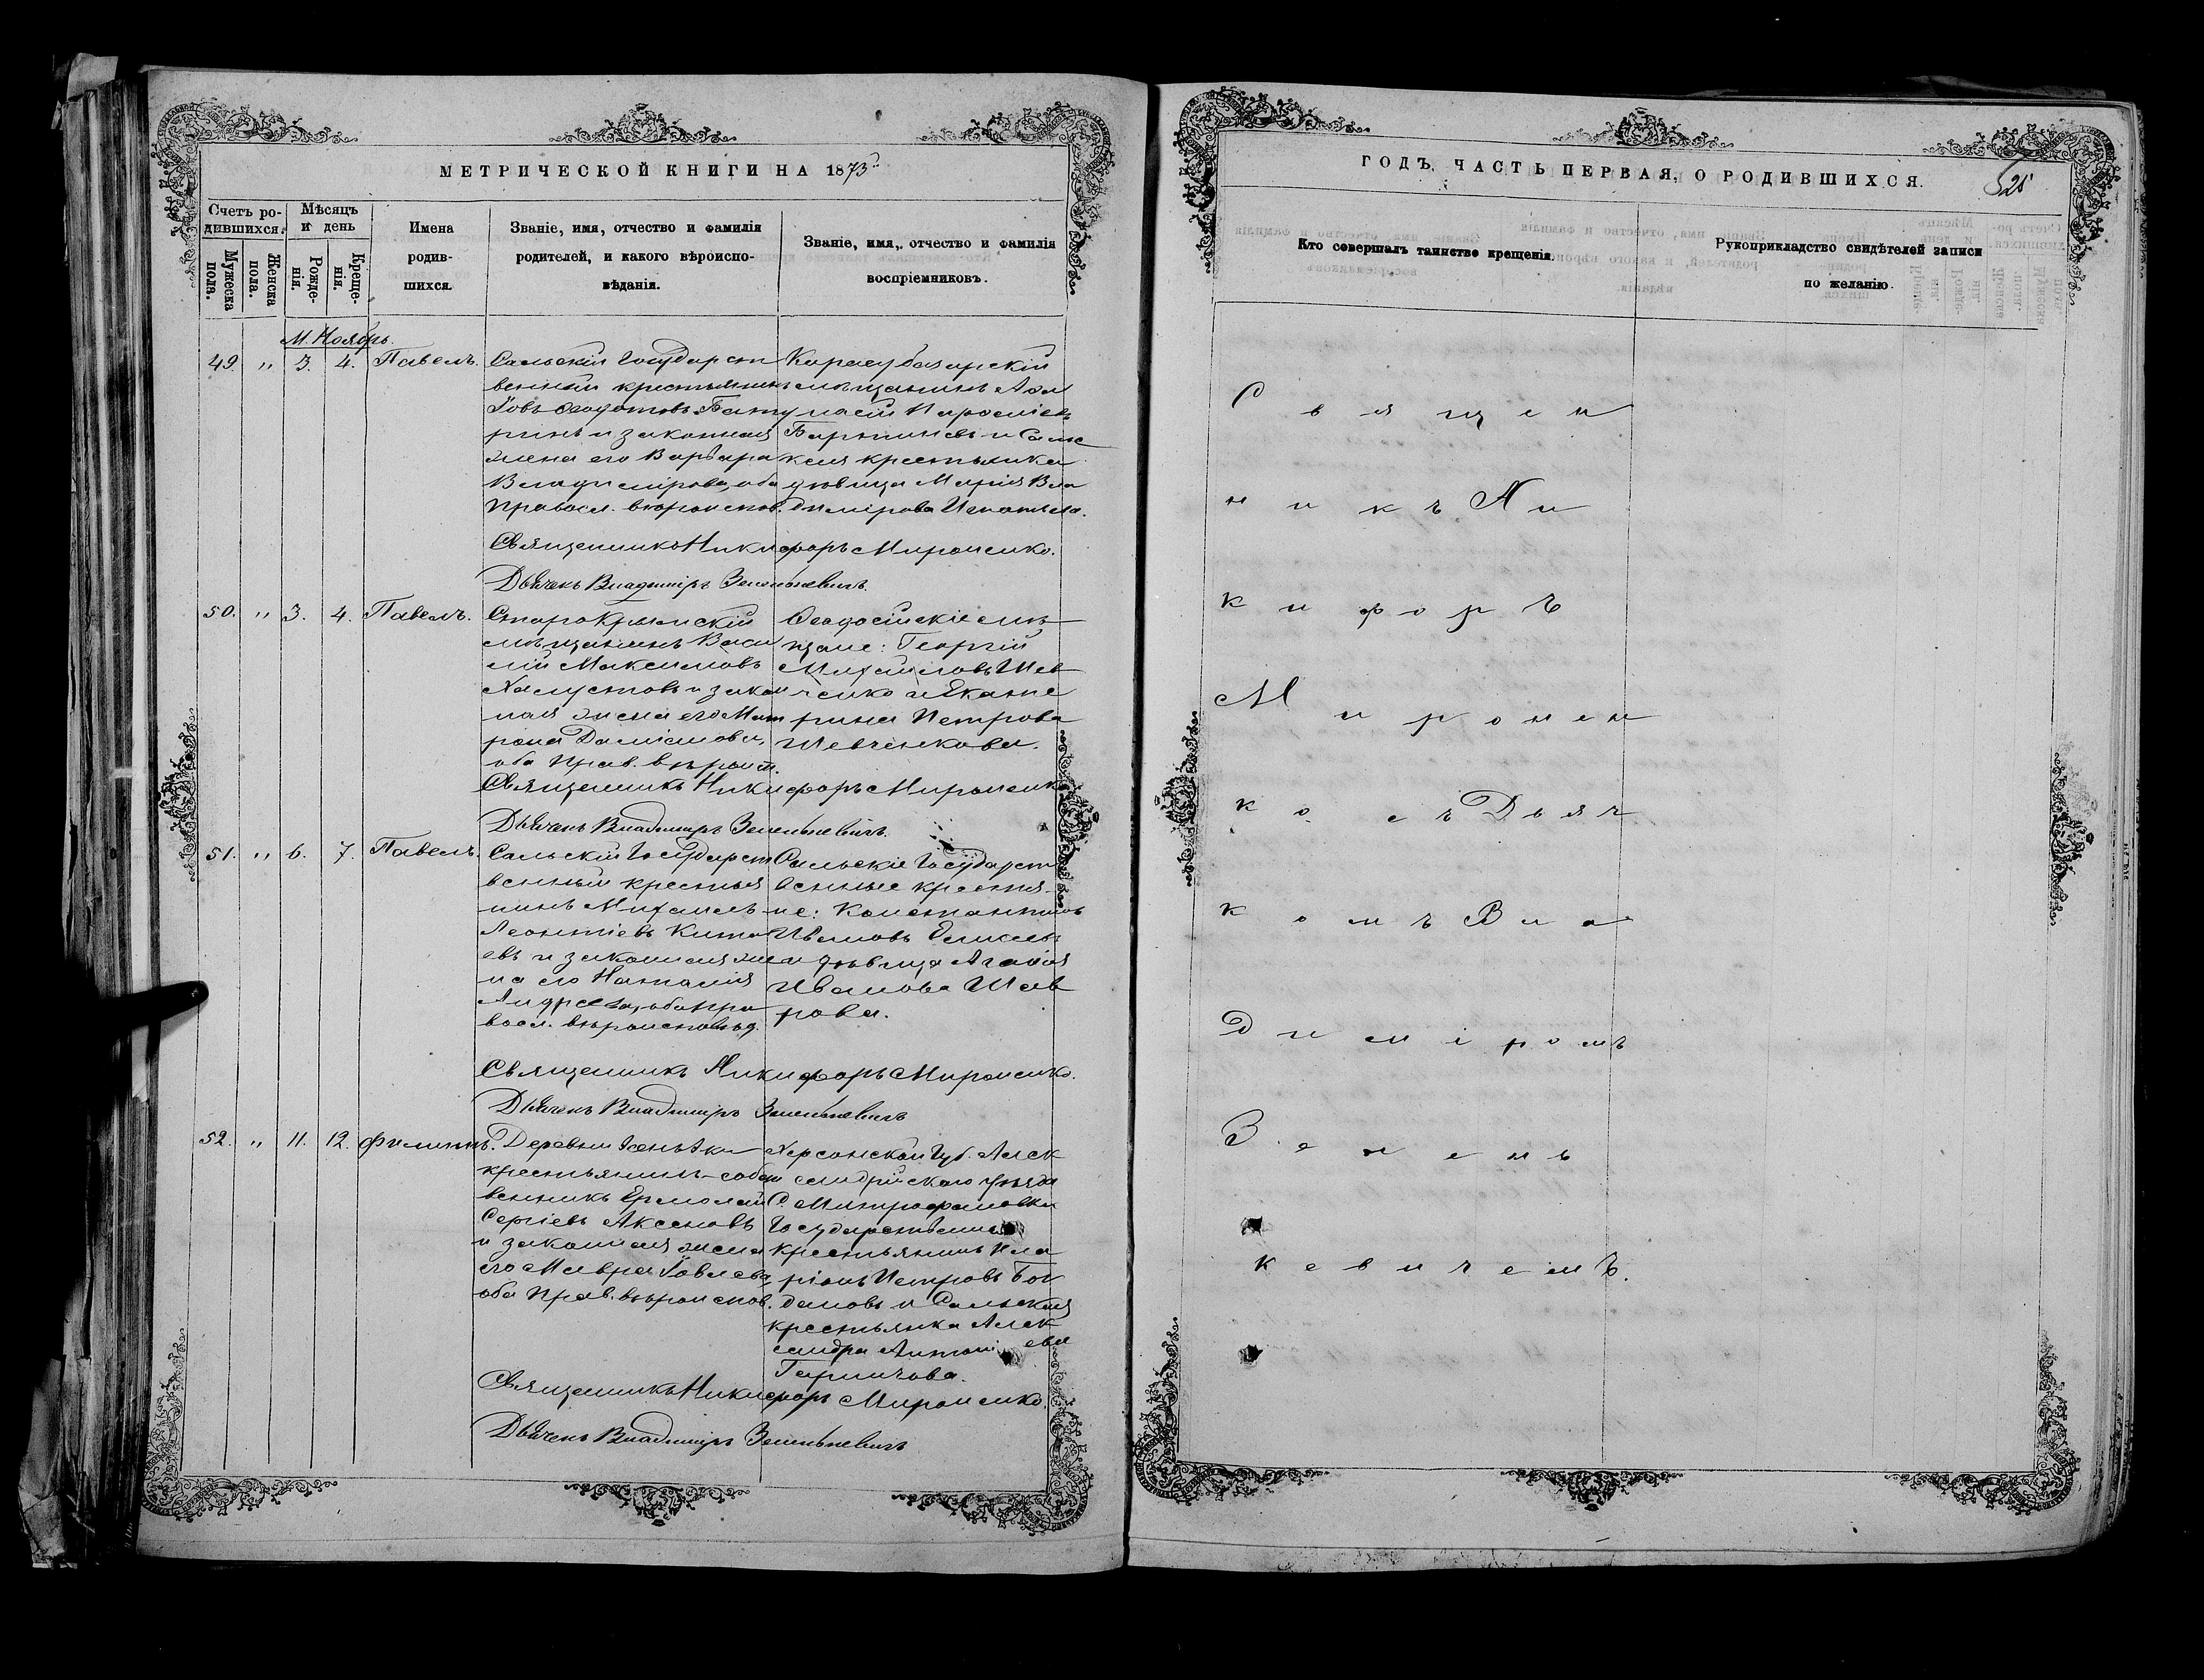 МЕТРИЧЕСКОЙ КНИГИ НА 1873
Счетъ ро-
дившихся.
Мѣсяцъ
и день
Мужеска
пола.
Женска
пола.
Рожде-
нія.
Креще-
нія.
Имена
родив-
шихся.
Званіе, имя, отчество и фамилія
родителей, и какого вѣроиспо-
вѣданія.
Званіе, имя, отчество и фамилія
воспріемниковъ.
М. Ноябрь.
49. " 3. 4. Павелъ.
Сальскій Государст
венный крестьянинъ
Іовъ Ѳедотовъ
и законная
жена его Варвара
Владимірова, оба
правосл. вѣроиспов.
Карасубазарскій
мѣщанинъ
и Саль
ская крестьянка
дѣвица Марія Вла
димірова
Священникъ Никифоръ Мироненко.
Дьячекъ Владиміръ Зененкевичъ.
50. " 3. 4. Павелъ.
Старокрымскій
мѣщанинъ Васи
лій Максимовъ
и закон
ная жена его Мат
рона Даміанова,
оба прав. вѣроисп.
Ѳеодосійскіе мѣ
щане: Георгій
Михайловъ Шев
ченко и Екате
рина Петрова
Шевченкова.
Священникъ Никифоръ Мироненко
Дьячекъ Владиміръ Зененкевичъ.
51. " 6. 7. Павелъ.
Сальскій Государст
венный крестья
нинъ Михаилъ
Леонтіевъ Кита
евъ и законная же
на его Наталія
Андреева, оба пра
восл. вѣроисповѣд.
Сальскіе Государст
венные крестья-
не: Константинъ
Ивановъ
и дѣвица Агафія
Иванова Шав
рова.
Священникъ Никифоръ Мироненко.
Дьячекъ Владиміръ Зененкевичъ
52. " 11. 12. Филиппъ.
Деревни
крестьянинъ-собст
венникъ Ермолай
Сергіевъ Аксеновъ
и законная жена
его Мавра Іовлева,
оба прав. вѣроиспов.
Херсонской Губ. Алек
сандрійскаго уѣзда
С. Митрофановки
Государственный
крестьянинъ Ила
ріонъ Петровъ Бог
дановъ и Сальская
крестьянка Алек
сандра Антоніева
Священникъ Никифоръ Мироненко.
Дьячекъ Владиміръ Зененкевичъ
ГОДЪ, ЧАСТЬ ПЕРВАЯ, О РОДИВШИХСЯ.
Кто совершалъ таинство крещенія.
Рукоприкладство свидѣтелей записи
по желанію.
Священ
никъ Ни
кифоръ
Миронен
ко съ Дьяч
комъ Вла
диміромъ
Зенен
кевичемъ.